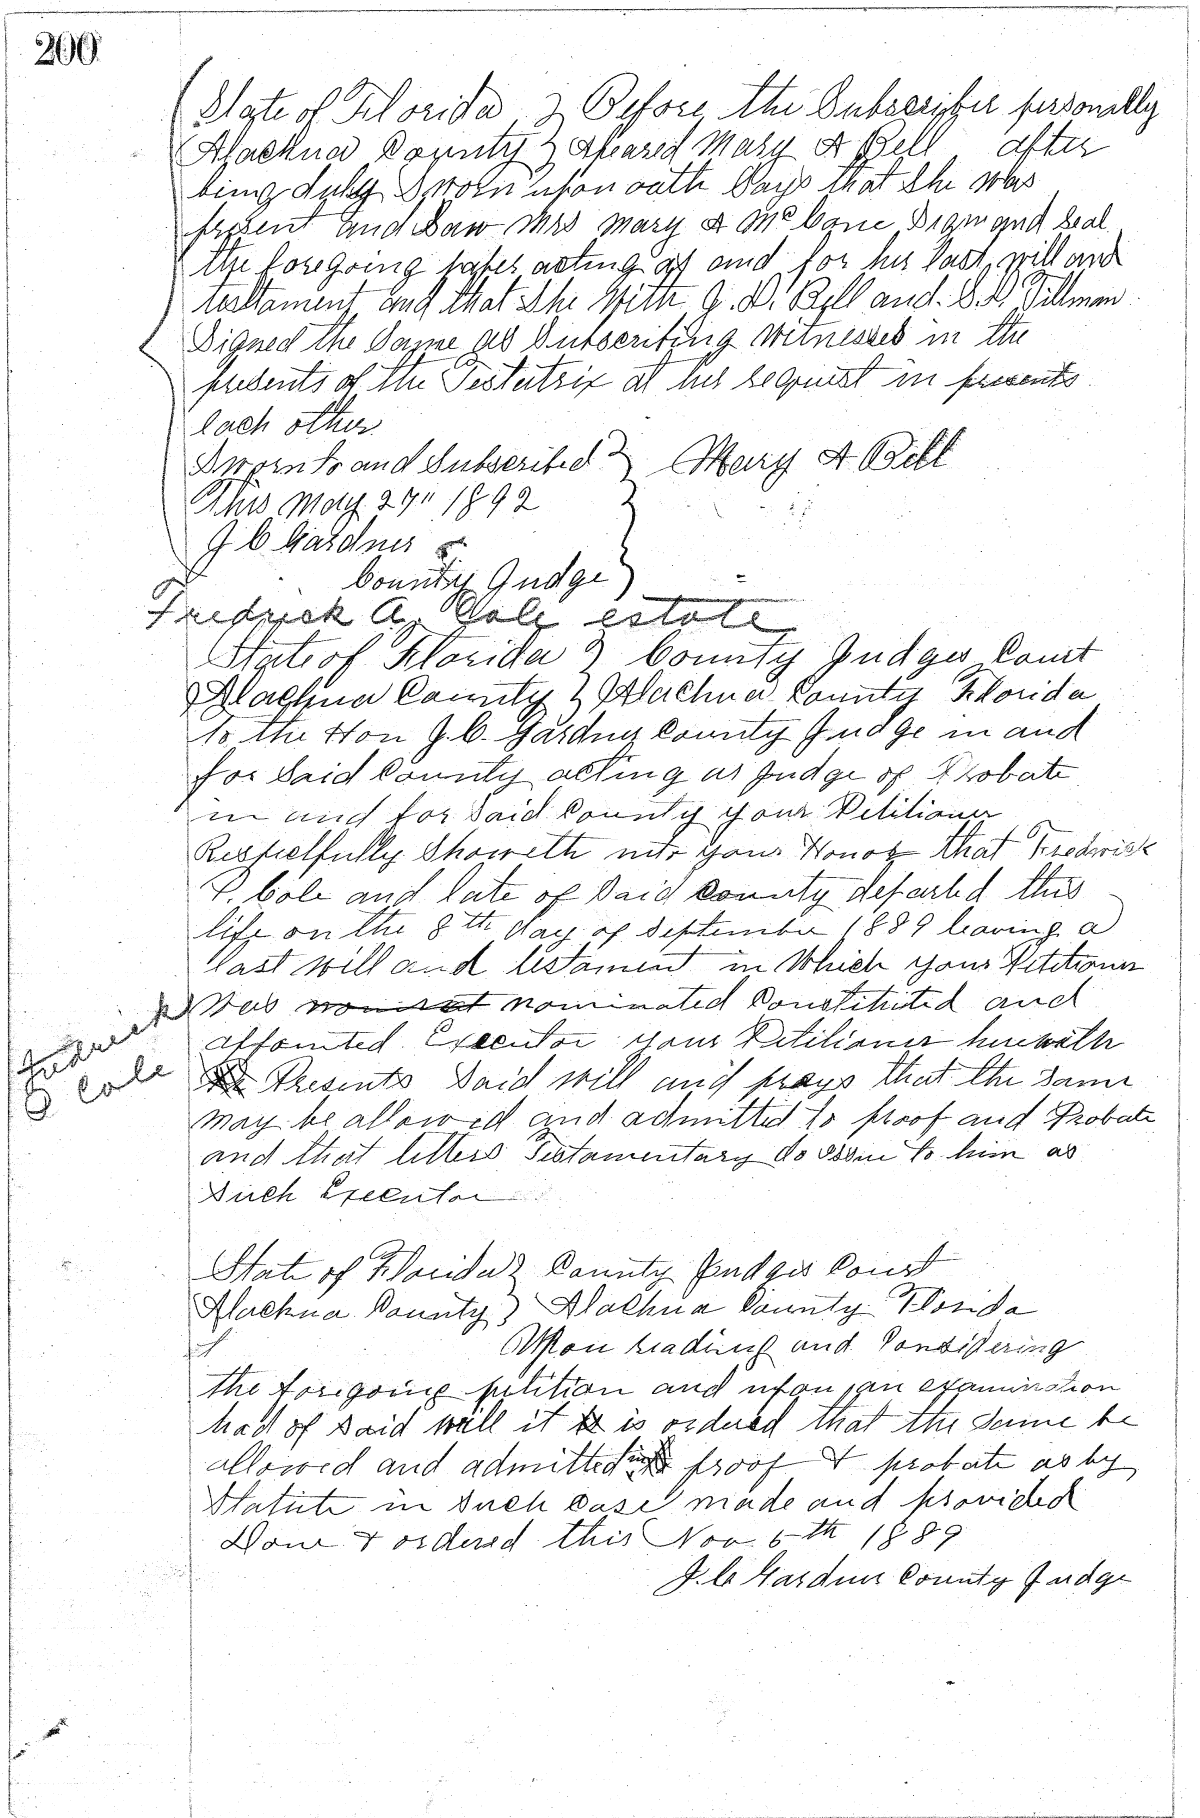 200
State of Florida } Before the Subscriber personally
Alachua County } Apeared Mary A Bell after
being duly Sworn upon oath Says that She was
present and Saw Mrs Mary A Sign and Seal
the foregoing paper acting as and for her last will and
testament and that She With J. D. Bell and S. Tillman
Signed the Same as Subscribing Witnesses in the
presents of the Testatrix at her request in presents
each other
Sworn to and Subscribed } Mary A Bell
This May 27" 1892
J C Gardner
County Judge }
Fredrick A. Cole estate
State of Florida } County Judges Court
Alachua County } Alachua County Florida
To the Hon J. C. Gardner County Judge in and
for Said County acting as Judge of Probate
in and for Said County your Petitioner
Respectfully Showeth unto your Honor that Fredrick
P. Cole and late of Said County departed this
life on the 8th day of September 1889 leaving a
last will and testament in Which your Petitioner
Was nominated Constituted and
appointed Executor your Petitioner herewith
Presents Said will and prays that the Same
may be allowed and admitted to proof and Probate
and that letters Testamentary do issue to him as
Such Executor
Fredrick
P Cole
State of Florida } County Judges Court
Alachua County } Alachua County Florida
Upon reading and Considering
the foregoing petition and upon an examination
had of Said will it is ordered that the Same be
allowed and admitted into proof & probate as by
Statute in Such case made and provided
Done & ordered this Nov 5th 1889
J. C. Gardner County Judge